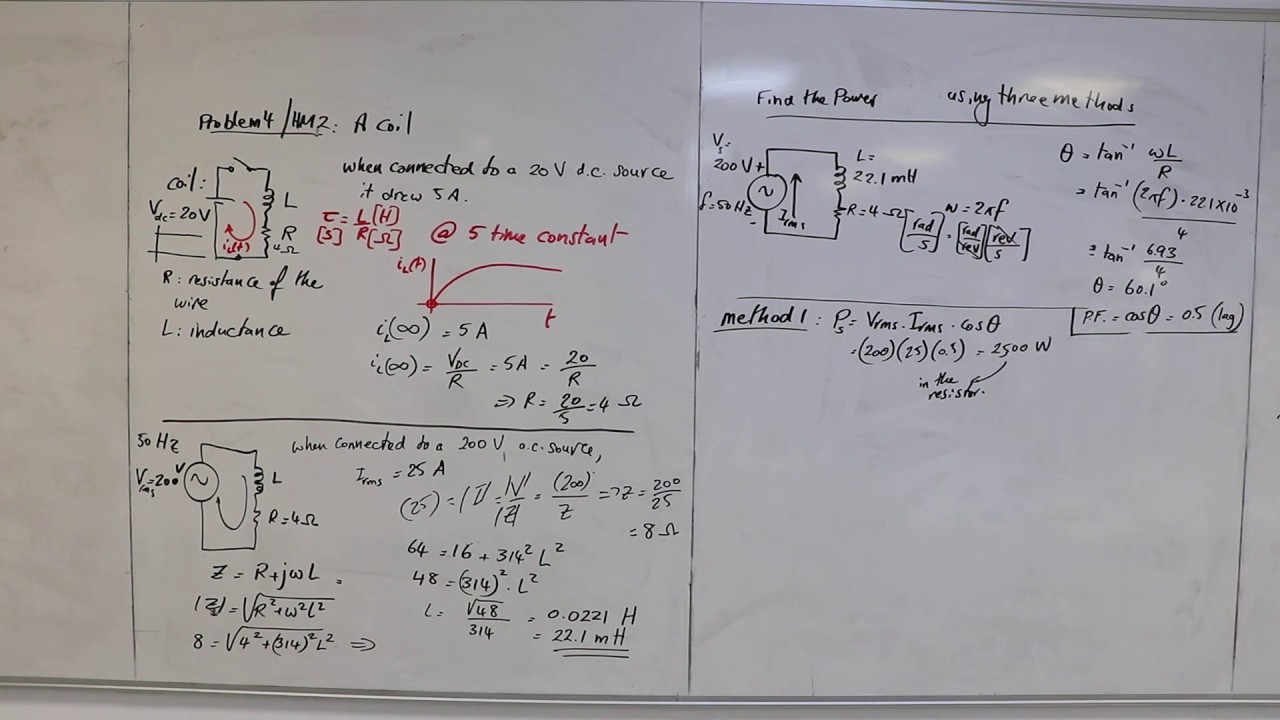 Problem 4/HM2: A coil
when connected to a 20 V d.c. source
it drew 5 A.
coil:
L
Vdc = 20V
R
4Ω
iL(t)
τ = L[H]
[S] R[Ω]
@ 5 time constant
iL(t)
t
R: resistance of the
wire
L: inductance
iL(∞) = 5 A
iL(∞) = VDC/R = 5A = 20/R
⇒ R = 20/5 = 4 Ω
50 Hz
when connected to a 200 V, a.c. source,
Vrms = 200 V
L
R = 4Ω
Irms = 25 A
(25) = |I| = |V|/|Z| = (200)/Z ⇒ Z = 200/25
= 8 Ω
Z = R+jωL
|Z| = √R²+ω²L²
8 = √4²+(314)²L² ⇒
64 = 16 + 314² L²
48 = (314)² · L²
L = √48/314 = 0.0221 H
= 22.1 mH
Find the Power using three methods
Vs =
200 V +
f = 50 Hz -
Irms
L =
22.1 mH
R = 4 Ω
ω = 2πf
[rad/s] = [rad/rev][rev/s]
θ = tan⁻¹ ωL/R
= tan⁻¹ (2πf)·22.1×10⁻³/4
= tan⁻¹ 6.93/4
θ = 60.1°
P.F. = cosθ = 0.5 (lag)
method 1: Ps = Vrms · Irms · cosθ
= (200)(25)(0.5) = 2500 W
in the
resistor.